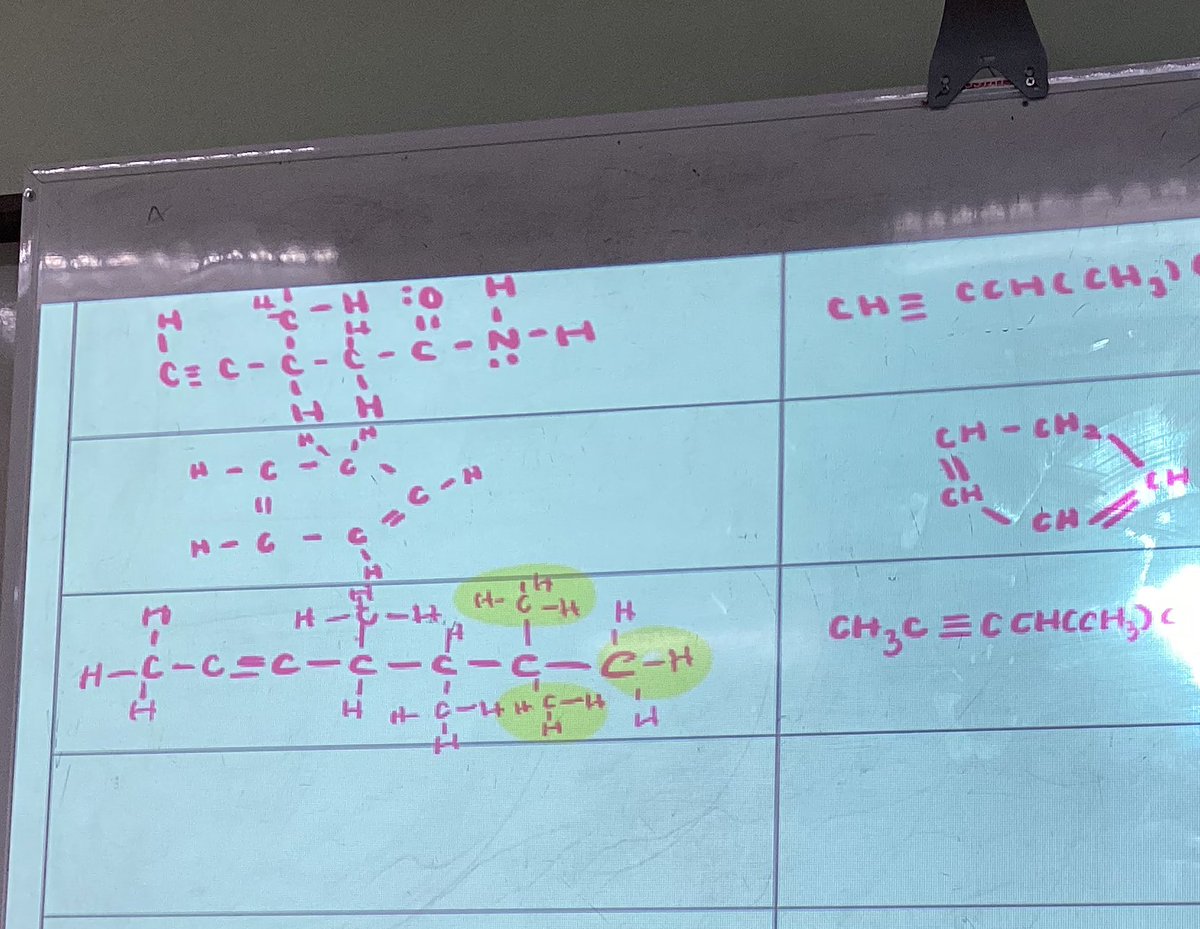 H H - H :O H
-C H || |
C≡C-C-C-C-N-H
H H
H H
H-C-C
|| C-H
H-C-C
H
H H-C-H H-C-H H
H
H-C-C≡C-C-C-C-C-H
H H H-C-H H C-H H
H H
CH≡CCH(CH₃)
CH-CH₂
|| CH
CH
CH
CH₃C≡CCHCCH₃)C